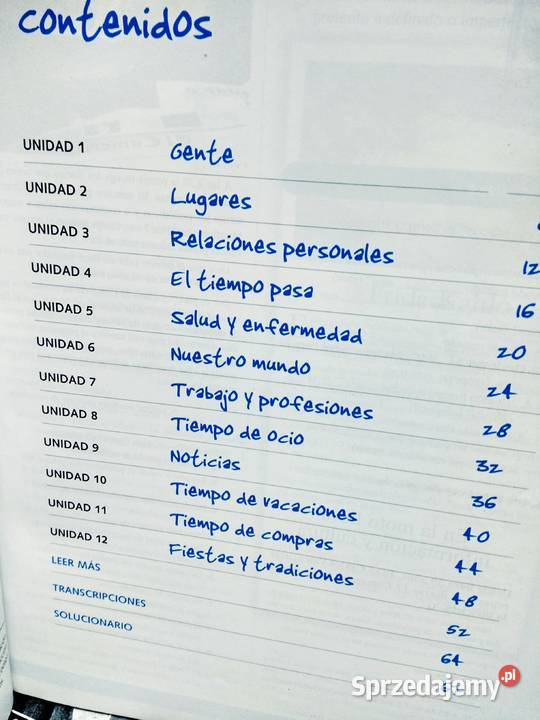 contenidos
UNIDAD 1 Gente
UNIDAD 2 Lugares
UNIDAD 3 Relaciones personales 12
UNIDAD 4 El tiempo pasa 16
UNIDAD 5 Salud y enfermedad 20
UNIDAD 6 Nuestro mundo 24
UNIDAD 7 Trabajo y profesiones 28
UNIDAD 8 Tiempo de ocio 32
UNIDAD 9 Noticias 36
UNIDAD 10 Tiempo de vacaciones 40
UNIDAD 11 Tiempo de compras 44
UNIDAD 12 Fiestas y tradiciones 48
LEER MÁS 52
TRANSCRIPCIONES 64
SOLUCIONARIO
Sprzedajemy.pl